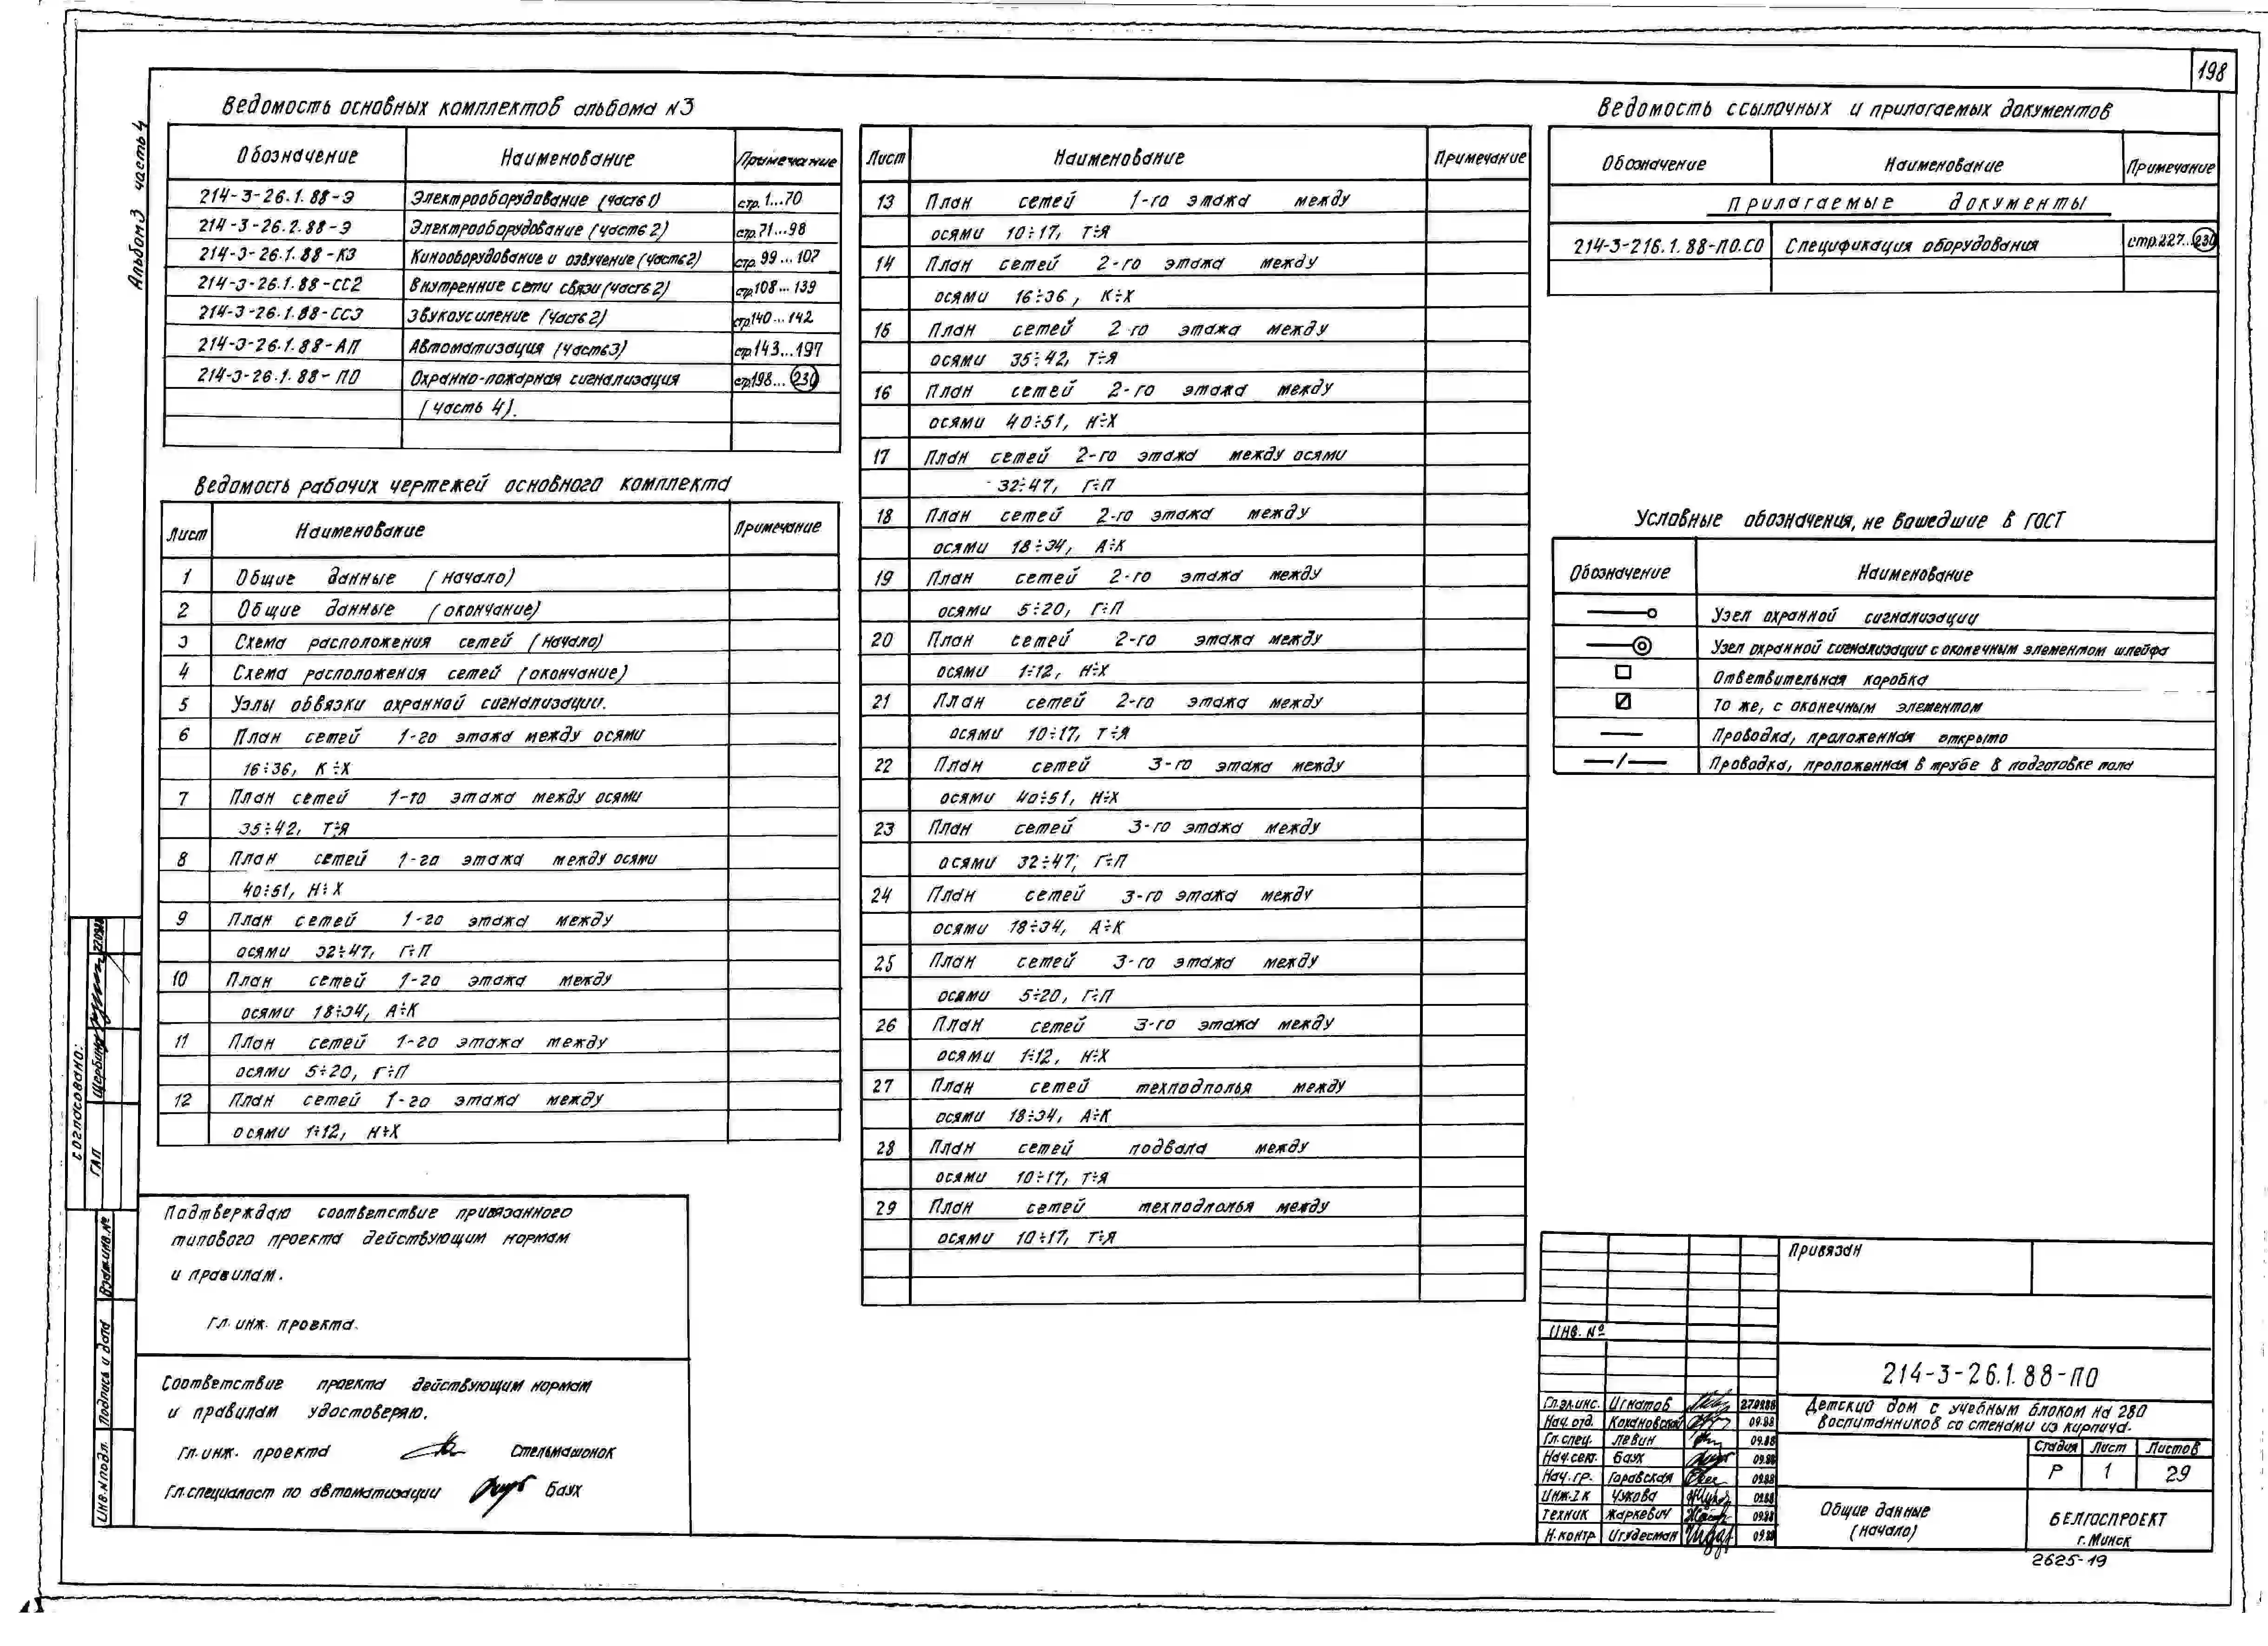 198
Альбом 3 часть 4
Ведомость основных комплектов альбома N3
Обозначение Наименование Примечание
214-3-26.1.88-Э Электрооборудование (часть 1) стр. 1...70
214-3-26.2.88-Э Электрооборудование (часть 2) стр. 71...98
214-3-26.1.88-КЗ Кинооборудование и озвучение (часть 2) стр. 99...107
214-3-26.1.88-СС2 Внутренние сети связи (часть 2) стр. 108...139
214-3-26.1.88-СС3 Звукоусиление (часть 2) стр. 140...142
214-3-26.1.88-АП Автоматизация (часть 3) стр. 143...197
214-3-26.1.88-ПО Охранно-пожарная сигнализация стр. 198...230
(часть 4).
Ведомость рабочих чертежей основного комплекта
Лист Наименование Примечание
1 Общие данные (начало)
2 Общие данные (окончание)
3 Схема расположения сетей (начало)
4 Схема расположения сетей (окончание)
5 Узлы обвязки охранной сигнализации.
6 План сетей 1-го этажа между осями
16÷36, К÷Х
7 План сетей 1-го этажа между осями
35÷42, Т÷Я
8 План сетей 1-го этажа между осями
40÷51, Н÷Х
9 План сетей 1-го этажа между
осями 32÷47, Г÷П
10 План сетей 1-го этажа между
осями 18÷34, А÷К
11 План сетей 1-го этажа между
осями 5÷20, Г÷П
12 План сетей 1-го этажа между
осями 1÷12, Н÷Х
Подтверждаю соответствие привязанного
типового проекта действующим нормам
и правилам.
Гл. инж. проекта.
Соответствие проекта действующим нормам
и правилам удостоверяю.
Гл. инж. проекта Стельмашонок
Гл. специалист по автоматизации Баух
Лист Наименование Примечание
13 План сетей 1-го этажа между
осями 10÷17, Т÷Я
14 План сетей 2-го этажа между
осями 16÷36, К÷Х
15 План сетей 2-го этажа между
осями 35÷42, Т÷Я
16 План сетей 2-го этажа между
осями 40÷51, Н÷Х
17 План сетей 2-го этажа между осями
32÷47, Г÷П
18 План сетей 2-го этажа между
осями 18÷34, А÷К
19 План сетей 2-го этажа между
осями 5÷20, Г÷П
20 План сетей 2-го этажа между
осями 1÷12, Н÷Х
21 План сетей 2-го этажа между
осями 10÷17, Т÷Я
22 План сетей 3-го этажа между
осями 40÷51, Н÷Х
23 План сетей 3-го этажа между
осями 32÷47, Г÷П
24 План сетей 3-го этажа между
осями 18÷34, А÷К
25 План сетей 3-го этажа между
осями 5÷20, Г÷П
26 План сетей 3-го этажа между
осями 1÷12, Н÷Х
27 План сетей техподполья между
осями 18÷34, А÷К
28 План сетей подвала между
осями 10÷17, Т÷Я
29 План сетей техподполья между
осями 10÷17, Т÷Я
Ведомость ссылочных и прилагаемых документов
Обозначение Наименование Примечание
Прилагаемые документы
214-3-216.1.88-ПО.СО Спецификация оборудования стр. 227...230
Условные обозначения, не вошедшие в ГОСТ
Обозначение Наименование
Узел охранной сигнализации
Узел охранной сигнализации с оконечным элементом шлейфа
Ответвительная коробка
То же, с оконечным элементом
Проводка, проложенная открыто
Проводка, проложенная в трубе в подготовке пола
Привязан
Инв. №
214-3-26.1.88-ПО
Гл.эл.инс. Игнатов 270988
Нач. отд. Кохановский 09.88
Гл. спец. Левин 09.88
Нач. сект. Баух 09.88
Нач. гр. Горавская 09.88
Инж. 2 к Чужова 09.88
Техник Жаркевич 09.88
Н. контр Игудесман 09.88
Детский дом с учебным блоком на 280
воспитанников со стенами из кирпича.
Стадия Лист Листов
Р 1 29
Общие данные
(начало)
БЕЛГОСПРОЕКТ
г. Минск
2625-19
Согласовано:
ГАП Щербина 27.09.88
Взам.инв.№
Подпись и дата
Инв.N подл.